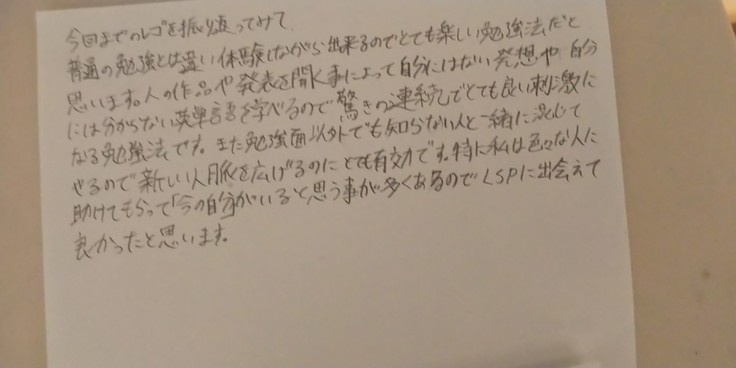 今回までのレゴを振り返ってみて
普通の勉強とは違い体験しながら出来るのでとても楽しい勉強法だと
思います。人の作品や発表を聞く事によって自分にはない発想や自分
には分からない英単語を学べるので驚きの連続でとても良い刺激に
なる勉強法です。また勉強面以外でも知らない人と一緒に混じて
やるので新しい人脈を広げるのにとても有効です。特に私は色々な人に
助けてもらって「今の自分がいる」と思う事が多くあるのでLSPに出会えて
良かったと思います。